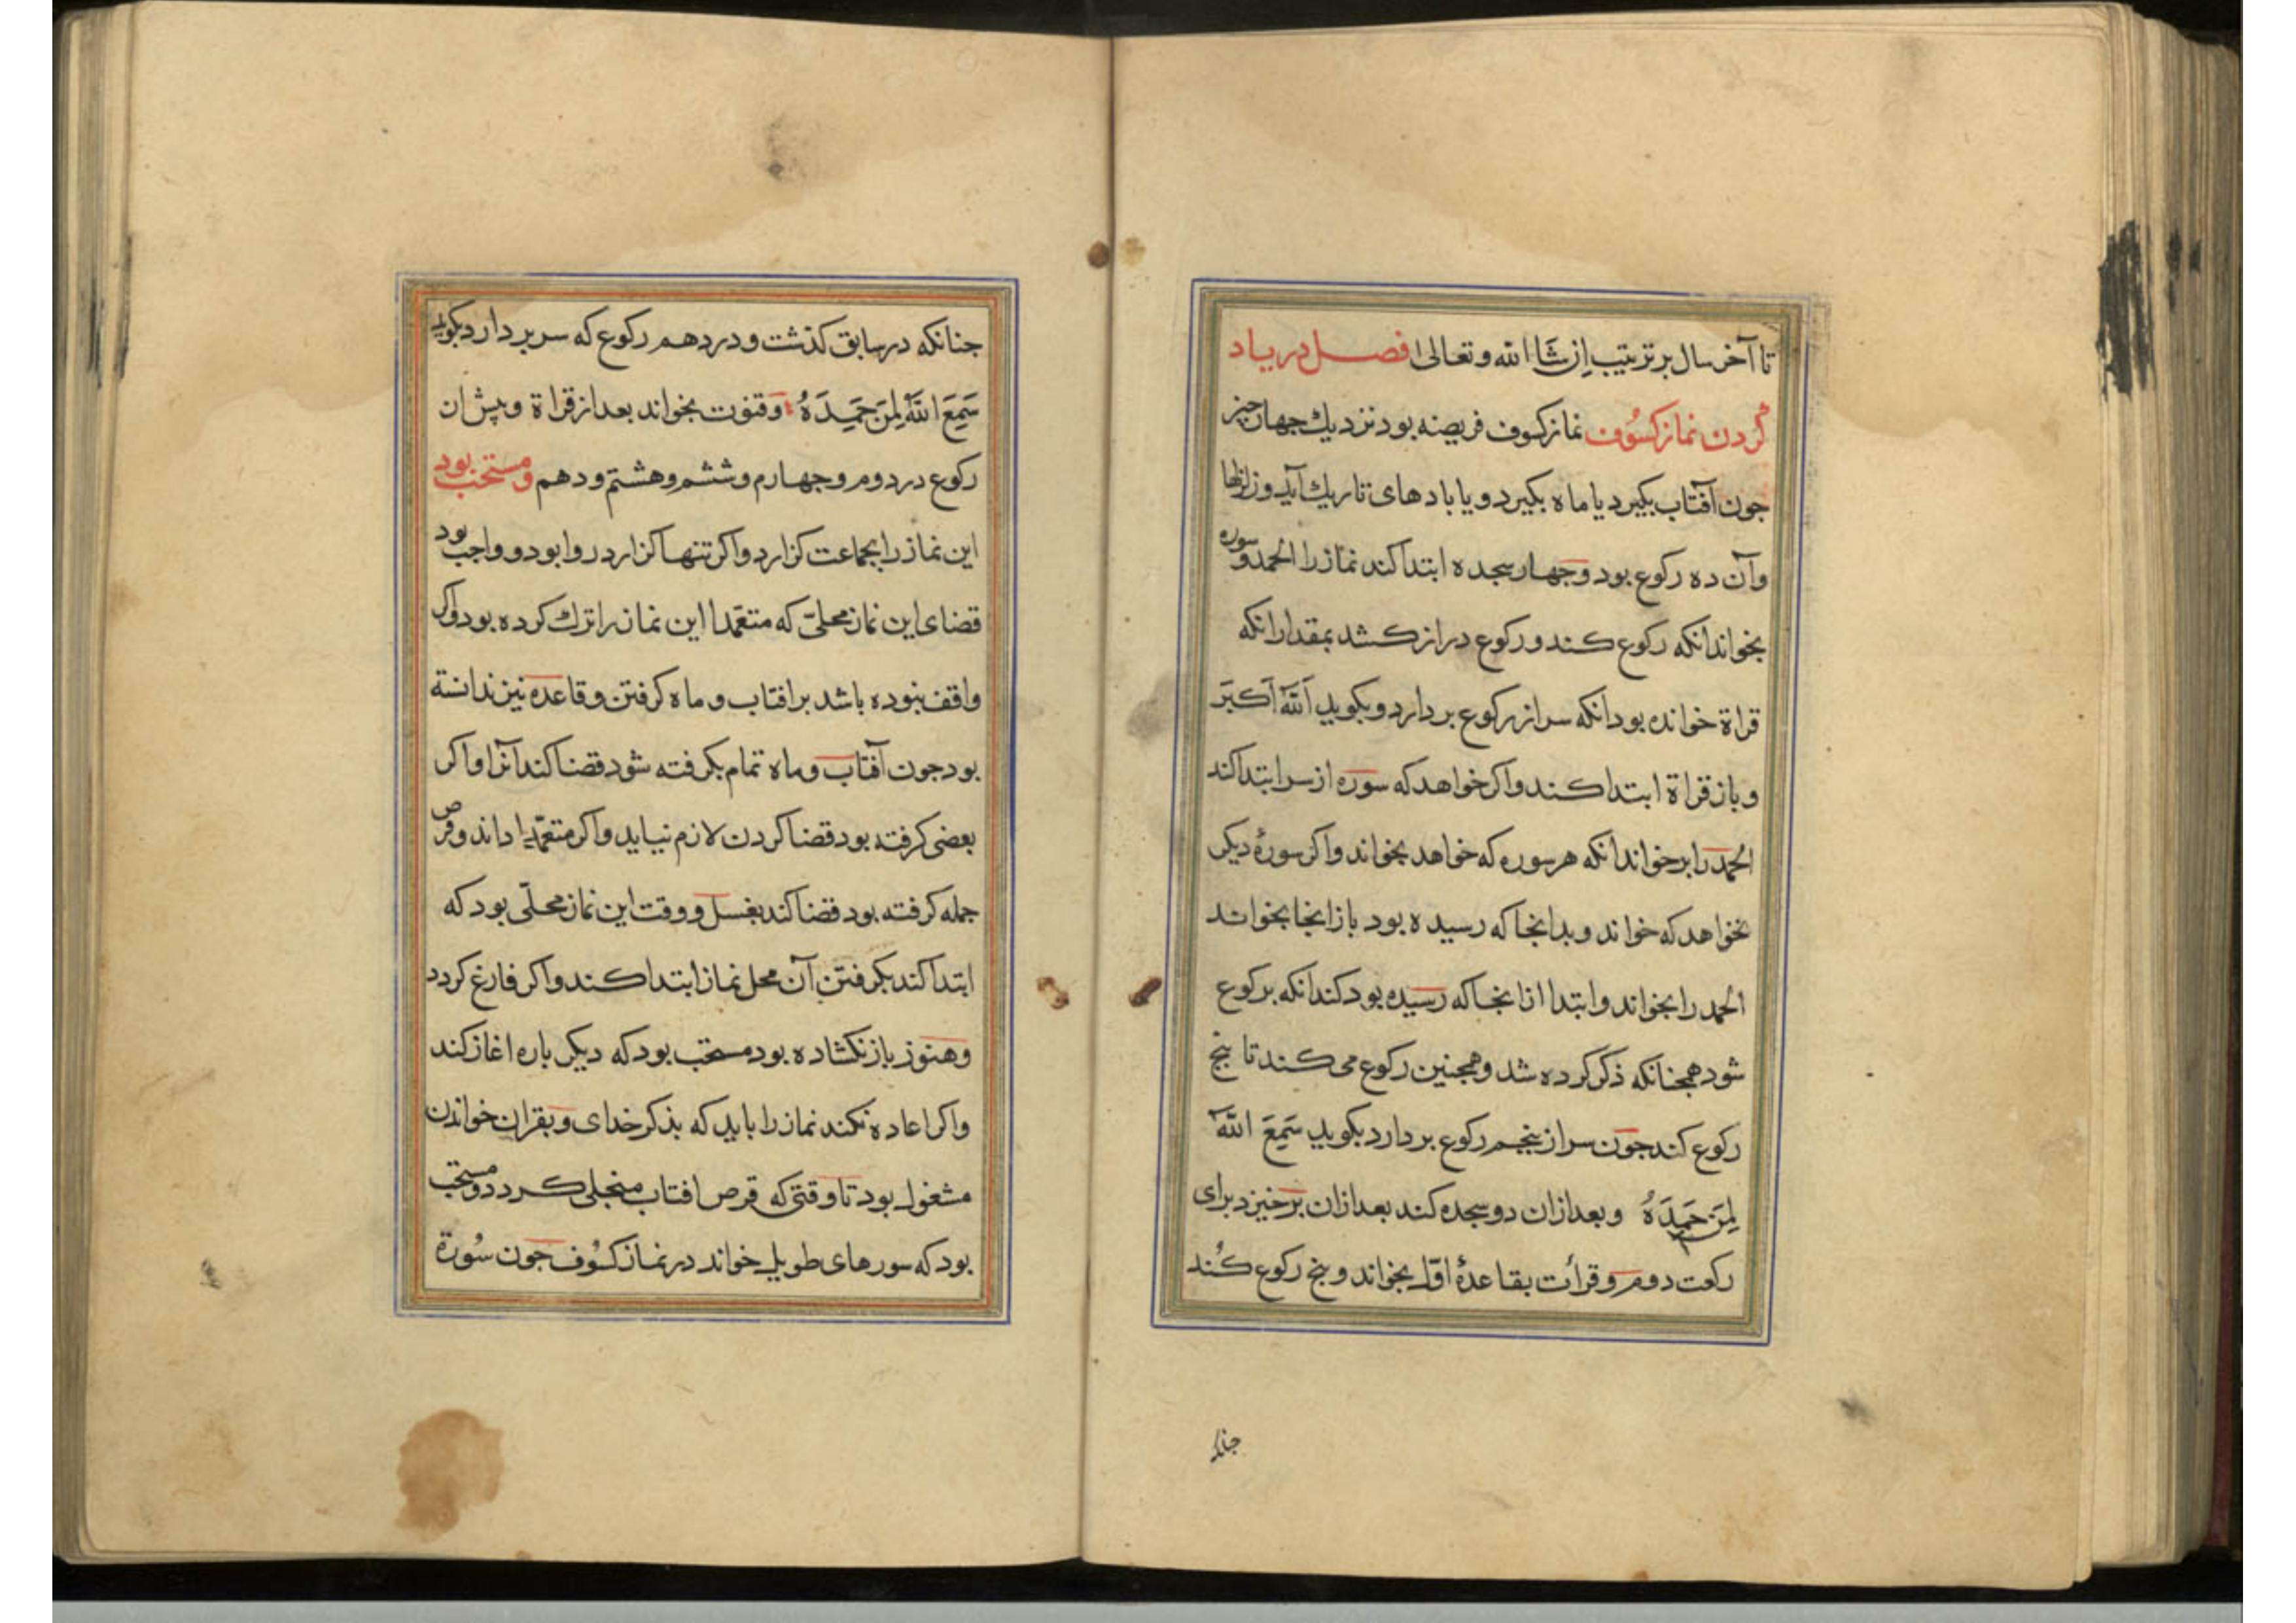 تا آخر سال بر ترتیب اِن شَاا الله و تعالی فصل در یاد
کردن نماز کسُوف نماز کسوف فریضه بود نزدیك جهار جیز
جون آفتاب بکیرد یا ماه بکیرد و یا بادهای تاریك آید و زلزلها
وآن ده رکوع بود وجهار سجده ابتدا کند نماز را الحمد و سوره
بخواند انکه رکوع کند و رکوع دراز کشد بمقدار انکه
قراة خوانده بود انکه سر از رکوع بردارد و بکوید اَللّهُ اَکبَر
و باز قراة ابتدا کند واکر خواهد که سوره از سر ابتدا کند
الحمد را بر خواند انکه هر سوره که خواهد بخواند واکر سورهٔ دیکر
نخواهد که خواند و بدانجا که رسیده بود باز انجا بخواند
الحمد را بخواند و ابتدا از انجا که رسیده بود کند انکه برکوع
شود همجنانکه ذکر کرده شد و همجنین رکوع می کند تا پنج
رکوع کند جون سر از پنجم رکوع بردارد بکوید سَمِعَ اللّهُ
لِمَن حَمِدَهُ و بعد ازان دو سجده کند بعد ازان برخیزد برای
رکعت دوم و قرأت بقاعدهٔ اوّل بخواند و پنج رکوع کُند
جنانکه در سابق کذشت و در دهم رکوع که سر بر دارد بکوید
سَمِعَ اللّهُ لِمَن حَمِیدَهُ وقنوت بخواند بعد از قراة و پیش ان
رکوع در دوم و جهارم و ششم و هشتم و دهم و مستحب بود
این نماز را بجماعت کزارد واکر تنها کزارد روا بود و واجب بود
قضای این نماز محلیّ که متعمّدا این نماز را ترك کرده بود واکر
واقف نبوده باشد بر افتاب و ماه کرفتن و قاعده نیز ندانسته
بود جون آفتاب و ماه تمام بکرفته شود قضا کند انرا واکر
بعضی کرفته بود قضا کردن لازم نیاید واکر متعمّدا داند و قرص
جمله کرفته بود قضا کند بغسل و وقت این نماز محلّی بود که
ابتدا کند بکرفتن آن محل نماز ابتدا کند واکر فارغ کردد
وهنوز باز نکشاده بود مستحب بود که دیکر باره اغاز کند
واکر اعاده نکند نماز را باید که بذکر خدای و بقران خواندن
مشغول بود تا وقتی که قرص افتاب منجلی کردد و مستحب
بود که سورهای طویل خواند در نماز کسُوف جون سُورة